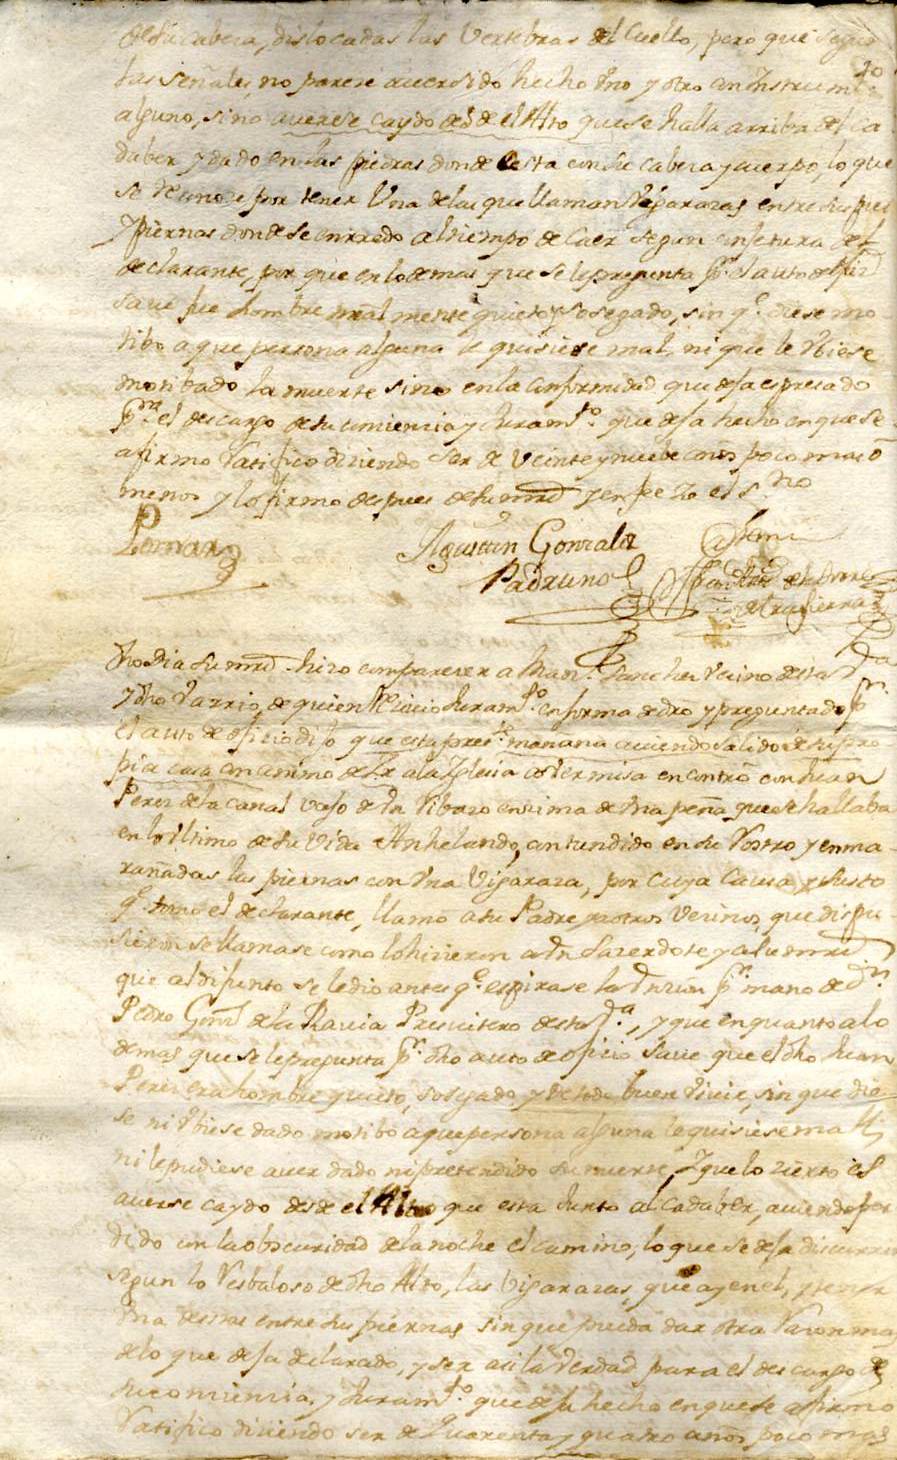 de su cabeza, dislocadas las vertebras del cuello, pero que segun
40
las señales, no parese aversido hecho uno y otro con instrumto
alguno, sino averse caydo desde el Alto que se halla arriba del ca
daber y dado en las piedras donde esta con su cabeza y cuerpo, lo que
se por tener Una de las que llaman Vigarazas entre sus pies
y piernas donde se enrredo al tiempo de Caer segun conjetura del
declarante, por que en lo demas que se le pregunta pr. el auto de
save fue hombre quieto y sosegado, sin qe. diese mo
tibo a que persona alguna le quisiese mal, ni que le Vbiese
motibado la muerte sino en la conformidad que deja espresado
para el descargo de su conciencia y Juramto. que deja hecho en que se
afirmo Ratifico diciendo ser de veinte y nuebe años poco mas o
menos y lo firmo despues de su mrd y en fee de ello Yo
Agustin Gonzalez
Padruno
Ante mi
dho dia su mrd hizo comparecer a Juan Sanchez Vezino de esta Va
y dho Varrio, de quien Reciuio Juramto. en forma de dro y preguntado pr.
el auto de oficio dijo que esta preste mañana auiendo salido de su pro
pia casa con animo de Ir a la Iglesia a oir misa encontró con Juan
Perez de la Canal vajo de Un Ribazo ensima de Una peña que se hallaba
en lo Vltimo de su Vida Anhelando, contundido en su Rostro y enma
rañadas las piernas con Una Vigaraza, por cuya Causa y susto
qe. tomo el declarante, llamó a su Padre y a otros Vezinos, que dispu
sieron se llamase como lo hizieron a Un Sazerdote y a su mrd
que al difunto se le dio antes qe. espirase la Vnzion pr. mano de Dn.
Pedro Gonz de la Rauia Presuitero de esta Va., y que en quanto a lo
demas que se le pregunta pr. dho auto de oficio save que el dho Juan
Perez era hombre quieto, sosegado y de todo buen Viuir, sin que die
se ni Vbiese dado motibo a que persona alguna le quisiese mal
ni le pudiese auer dado ni pretendido su muerte, Y que lo zierto es
auerse caydo desde el Alto que esta Junto al cadaber, auiendo per
dido con la obscuridad de la noche el camino, lo que se deja discurrir
segun lo Resbaloso de dho Alto, las Vigarazas, que ay en el, y tener
Una de estas entre sus piernas sin que pueda dar otra Razon mas
de lo que deja declarado, y ser asi la Verdad para el descargo de
su conciencia, y Juramto. que deja hecho en que se afirmo
Ratifico diciendo ser de Quarenta y quatro años poco mas